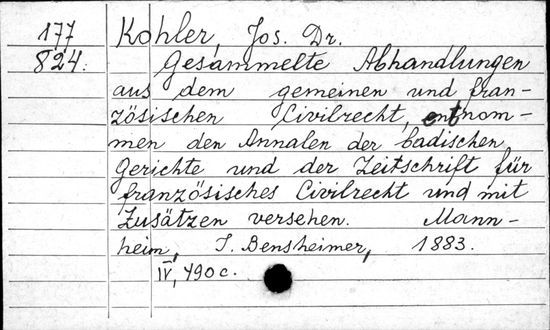 177 Kohler, Jos. Dr.
824. Gesammelte Abhandlungen
aus dem gemeinen und fran-
zösischen Civilrecht, entnom-
men den Annalen der badischen
Gerichte und der Zeitschrift für
französisches Civilrecht und mit
Zusätzen versehen. Mann-
heim, J. Bensheimer, 1883.
IV, 490 c.